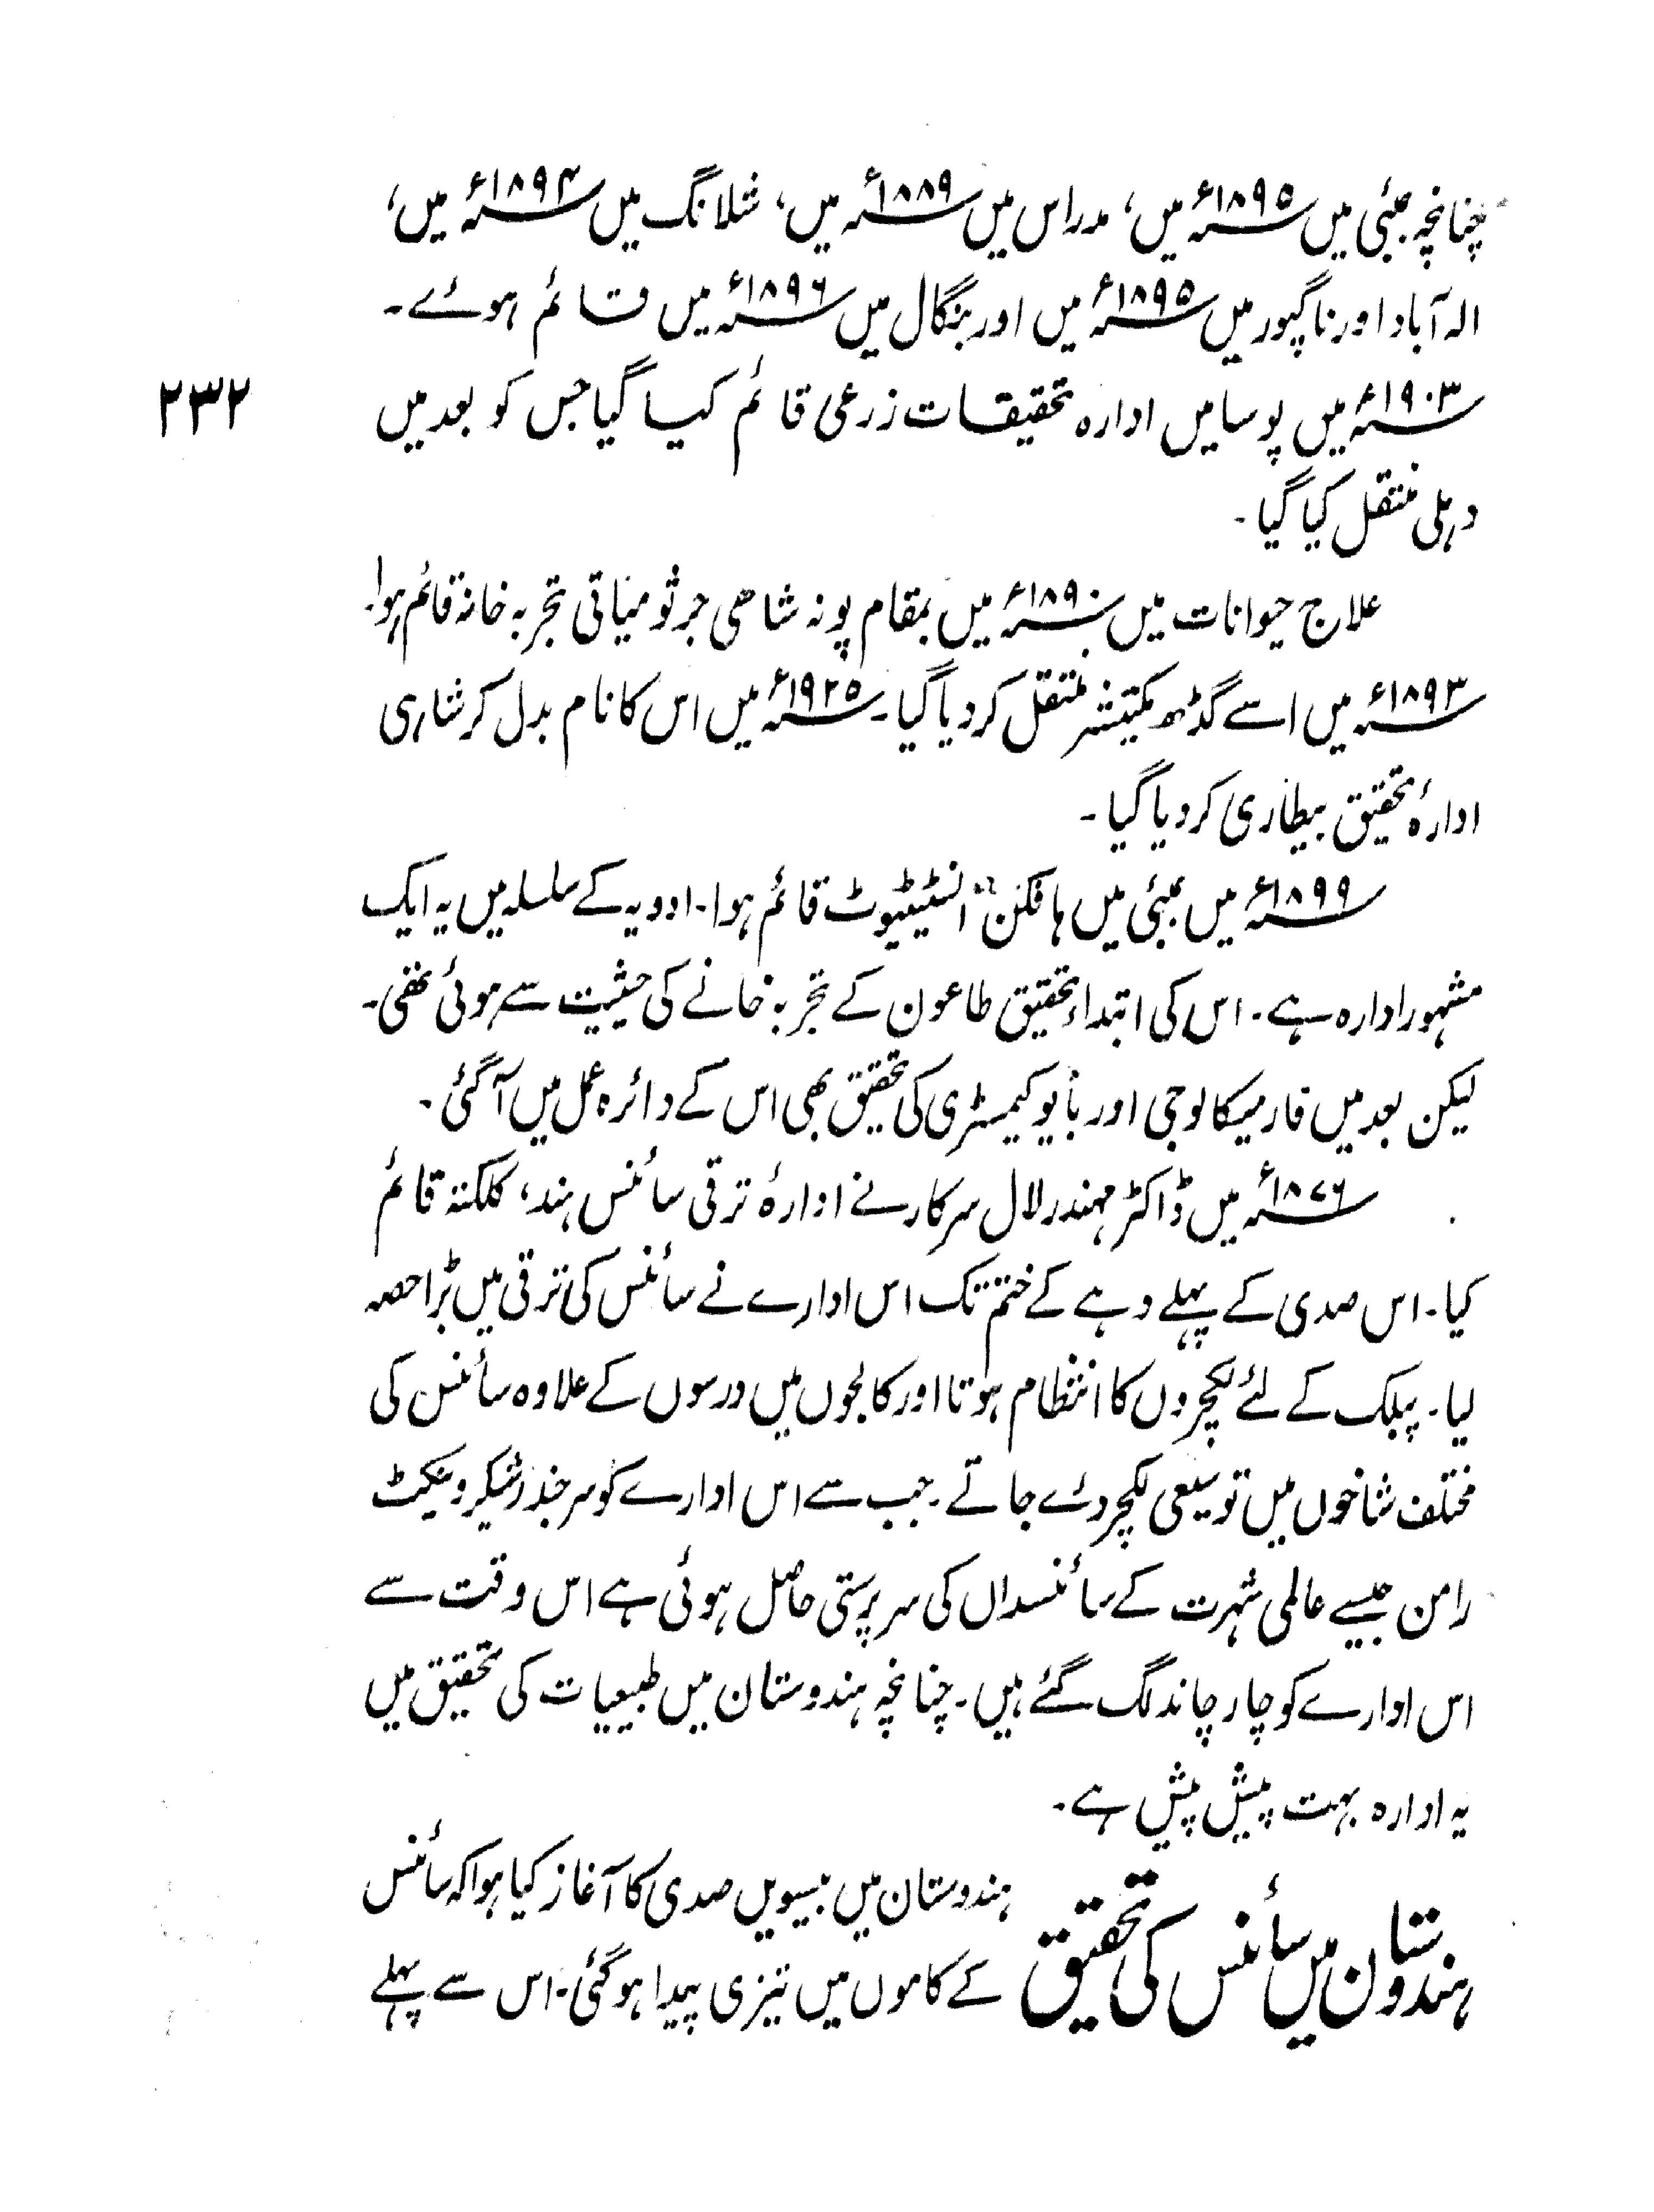 چنانچہ بمبئی میں ۱۸۹۵ء میں، مدراس میں ۱۸۸۹ء میں، شلانگ میں ۱۸۹۴ء میں،
الہ آباد اور ناگپور میں ۱۸۹۵ء میں اور بنگال میں ۱۸۹۶ء میں قائم ہوئے۔
۱۹۰۳ء میں پوسا میں ادارہ تحقیقات زرعی قائم کیا گیا جس کو بعد میں
۲۳۲
دہلی منتقل کیا گیا۔
علاج حیوانات میں ۱۸۹۰ء میں بمقام پونہ شاھی جرثومیاتی تجربہ خانہ قائم ہوا۔
۱۸۹۳ء میں اسے گڈھ مکتیشر منتقل کر دیا گیا۔ ۱۹۲۵ء میں اس کا نام بدل کر شاہی
ادارۂ تحقیق بیطاری کر دیا گیا۔
۱۸۹۹ء میں بمبئی میں ہافکن انسٹیٹیوٹ قائم ہوا۔ ادویہ کے سلسلہ میں یہ ایک
مشہور ادارہ ہے۔ اس کی ابتداء تحقیق طاعون کے تجربہ خانے کی حیثیت سے ہوئی تھی۔
لیکن بعد میں فارمیکالوجی اور بایوکیمسٹری کی تحقیق بھی اس کے دائرہ عمل میں آگئی۔
۱۸۷۶ء میں ڈاکٹر مہندر لال سرکار نے ادارۂ ترقی سائنس ہند، کلکتہ قائم
کیا۔ اس صدی کے پہلے دہے کے ختم تک اس ادارے نے سائنس کی ترقی میں بڑا حصہ
لیا۔ پبلک کے لئے لکچروں کا انتظام ہوتا اور کالجوں میں درسوں کے علاوہ سائنس کی
مختلف شاخوں میں توسیعی لکچر دئے جاتے۔ جب سے اس ادارے کو سر چندر شیکر وینکٹ
رامن جیسے عالمی شہرت کے سائنسداں کی سرپرستی حاصل ہوئی ہے اس وقت سے
اس ادارے کو چار چاند لگ گئے ہیں۔ چنانچہ ہندوستان میں طبیعیات کی تحقیق میں
یہ ادارہ بہت پیش پیش ہے۔
ہندوستان میں سائنس کی تحقیق
ہندوستان میں بیسویں صدی کا آغاز کیا ہوا کہ سائنس
کے کاموں میں تیزی پیدا ہوگئی۔ اس سے پہلے